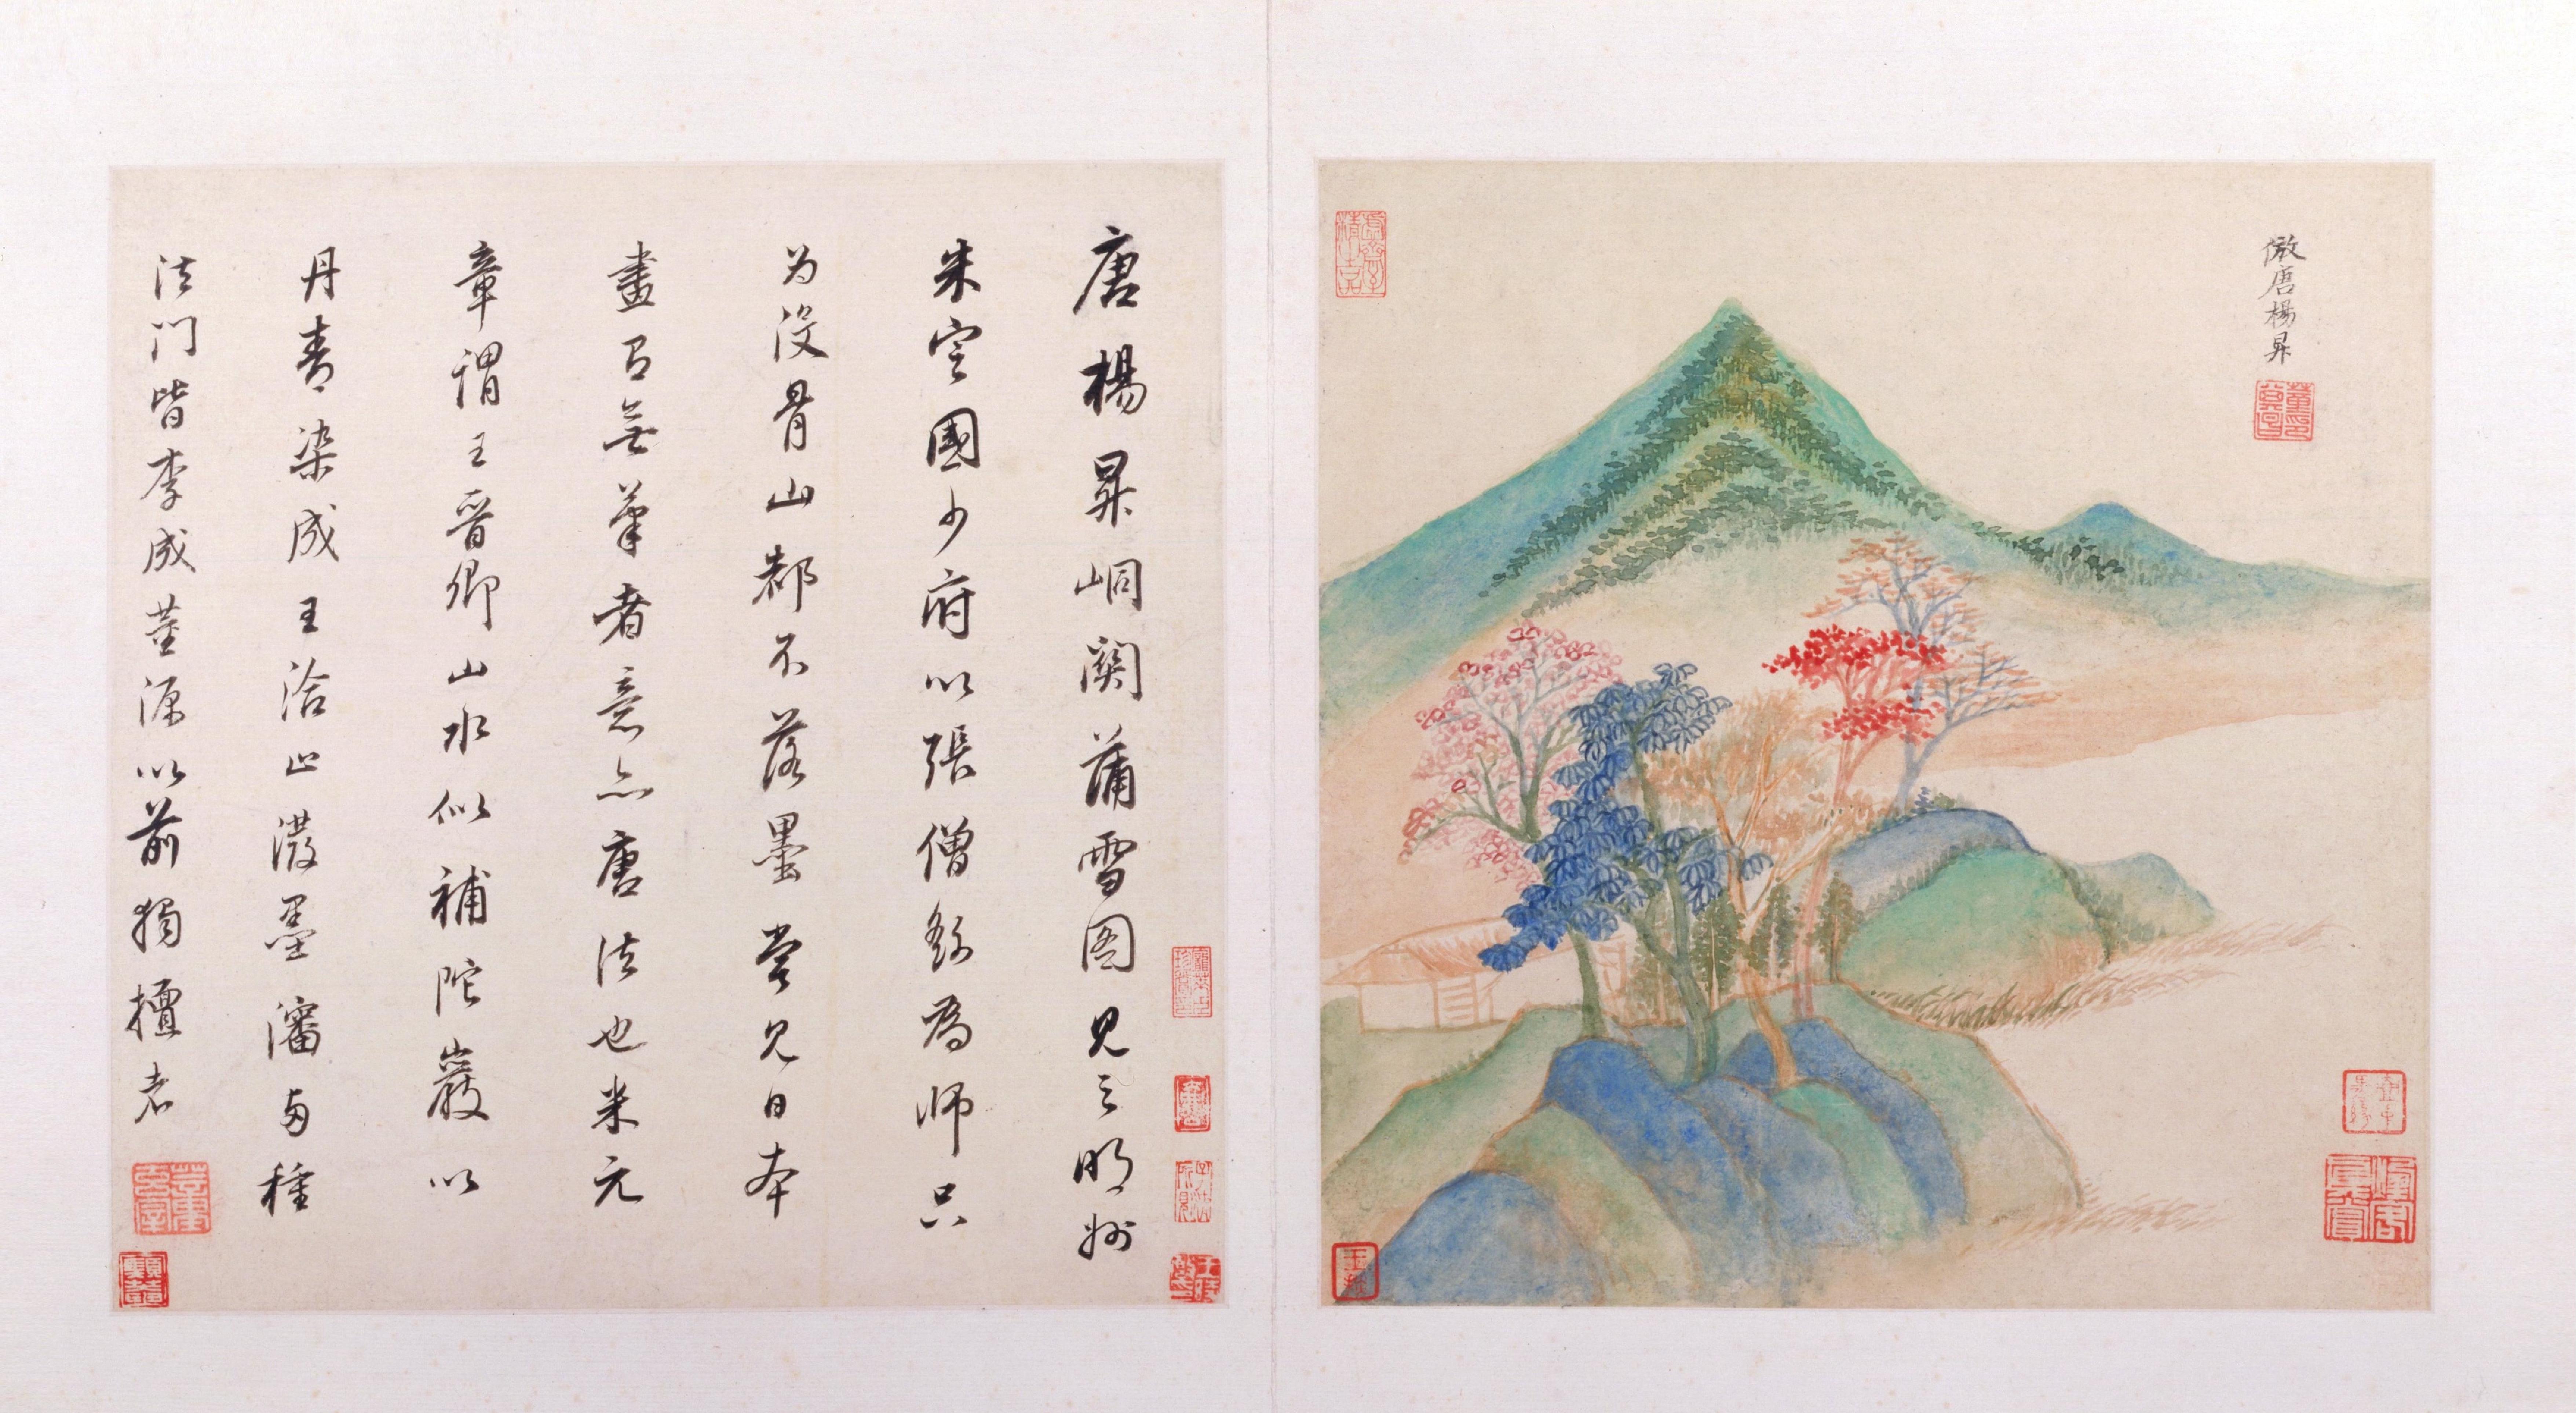 倣唐楊昇
唐楊昇峒關蒲雪图見之明州
朱定國少府以張僧繇為師只
为沒骨山都不落墨嘗見日本
畫有無筆者意亦唐法也米元
章謂王晉卿山水似補陀巖以
丹青染成王洽止潑墨瀋兩種
法門皆李成董源以前獨擅者